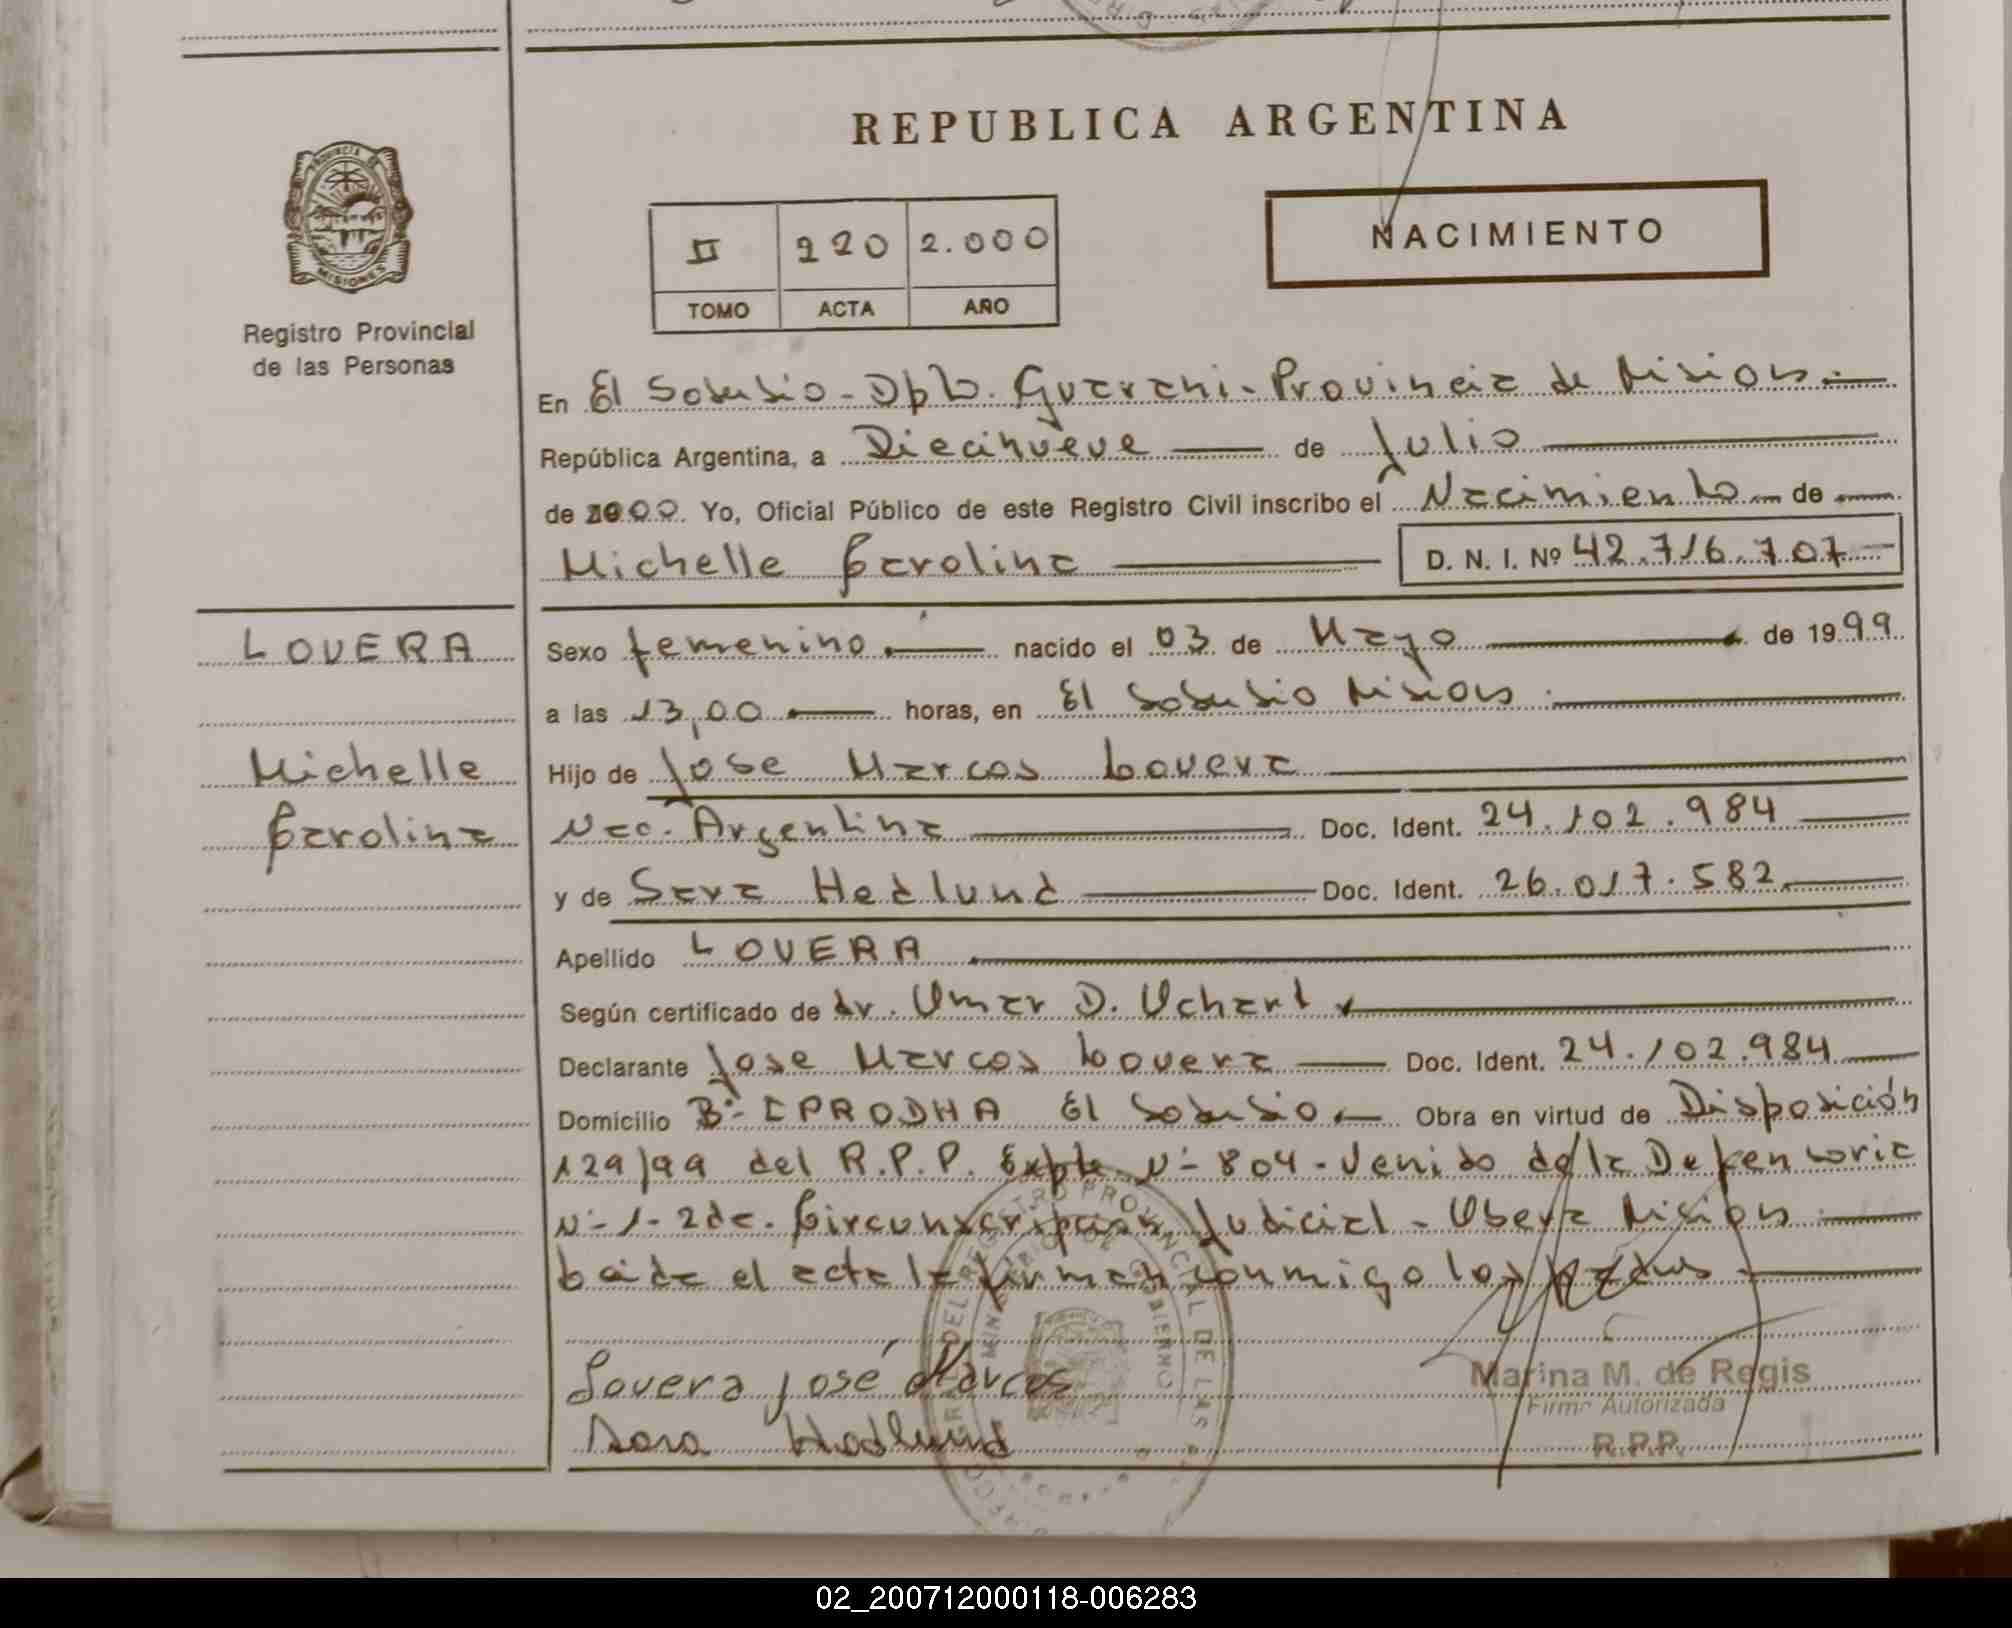 REPUBLICA ARGENTINA
PROVINCIA DE
MISIONES
Registro Provincial
de las Personas
II 220 2.000
TOMO ACTA AÑO
NACIMIENTO
En El Soberbio - Dpto. Guarani - Provincia de Misiones
República Argentina, a Diecinueve de Julio
de 2000. Yo, Oficial Público de este Registro Civil inscribo el Nacimiento de
Michelle Carolina D. N. I. Nº 42.716.707
LOVERA
Sexo femenino nacido el 03 de Mayo de 1999
a las 13,00 horas, en El Soberbio Misiones
Michelle
Hijo de Jose Marcos Lovera
Carolina
Nac. Argentina Doc. Ident. 24.102.984
y de Sara Hedlund Doc. Ident. 26.017.582
Apellido LOVERA
Según certificado de dr. Omar D. Uchart
Declarante Jose Marcos Lovera Doc. Ident. 24.102.984
Domicilio Bº- IPRODHA El Soberbio Obra en virtud de Disposición
129/99 del R.P.P. Expte Nº- 804 - Venido de la Defensoria
Nº- 1 - 2da. Circunscripcion Judicial - Obera Misiones
el acta la firman conmigo los padres
Lovera José Marcos
Sara Hedlund
Marina M. de Regis
Firma Autorizada
R.P.P.
DEL REGISTRO PROVINCIAL DE LAS
02_200712000118-006283